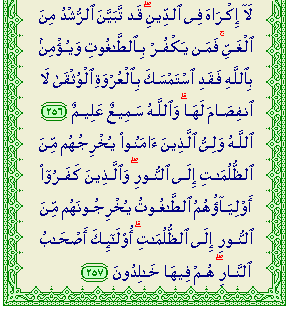 لَآ إِكْرَاهَ فِى ٱلدِّينِ ۖ قَد تَّبَيَّنَ ٱلرُّشْدُ مِنَ
ٱلْغَىِّ ۚ فَمَن يَكْفُرْ بِٱلطَّـٰغُوتِ وَيُؤْمِنۢ
بِٱللَّهِ فَقَدِ ٱسْتَمْسَكَ بِٱلْعُرْوَةِ ٱلْوُثْقَىٰ لَا
ٱنفِصَامَ لَهَا ۗ وَٱللَّهُ سَمِيعٌ عَلِيمٌ ﴿٢٥٦﴾
ٱللَّهُ وَلِىُّ ٱلَّذِينَ ءَامَنُوا۟ يُخْرِجُهُم مِّنَ
ٱلظُّلُمَـٰتِ إِلَى ٱلنُّورِ ۖ وَٱلَّذِينَ كَفَرُوٓا۟
أَوْلِيَآؤُهُمُ ٱلطَّـٰغُوتُ يُخْرِجُونَهُم مِّنَ
ٱلنُّورِ إِلَى ٱلظُّلُمَـٰتِ ۗ أُو۟لَـٰٓئِكَ أَصْحَـٰبُ
ٱلنَّارِ ۖ هُمْ فِيهَا خَـٰلِدُونَ ﴿٢٥٧﴾